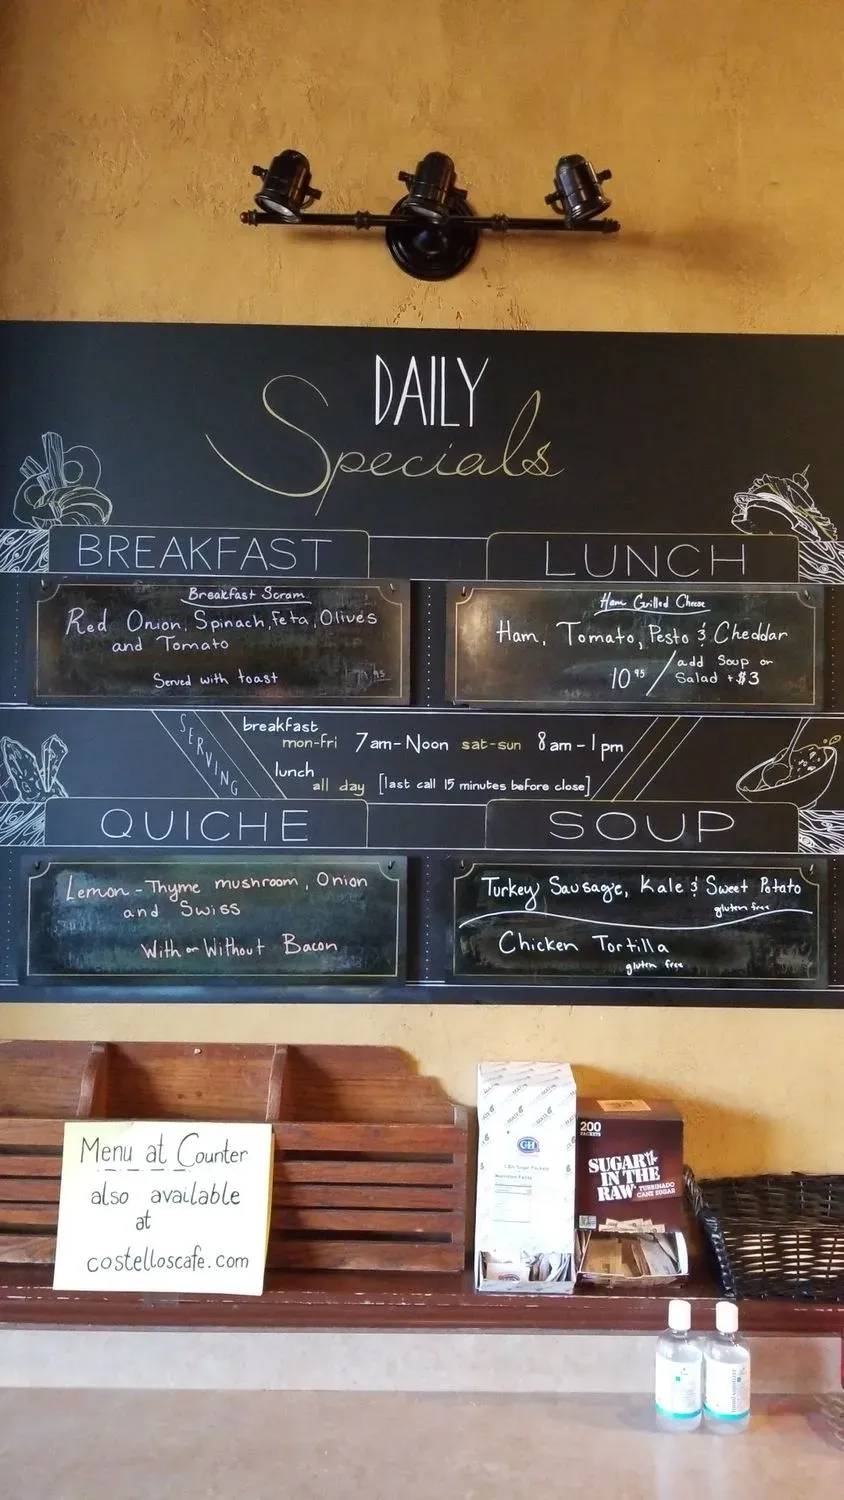 DAILY
Specials
BREAKFAST
Breakfast Scram
Red Onion, Spinach, Feta, Olives
and Tomato
Served with toast
LUNCH
Ham Grilled Cheese
Ham, Tomato, Pesto & Cheddar
10 95 / add Soup or
Salad +$3
SERVING
breakfast
mon-fri 7am-Noon sat-sun 8am-1pm
lunch
all day [last call 15 minutes before close]
QUICHE
Lemon-Thyme mushroom, Onion
and Swiss
With or Without Bacon
SOUP
Turkey Sausage, Kale & Sweet Potato
gluten free
Chicken Tortilla
gluten free
Menu at Counter
also available
at
costelloscafe.com
C&H
Nutrition Facts
200
PACKETS
SUGAR
IN THE
RAW
TURBINADO
CANE SUGAR
hand sanitizer